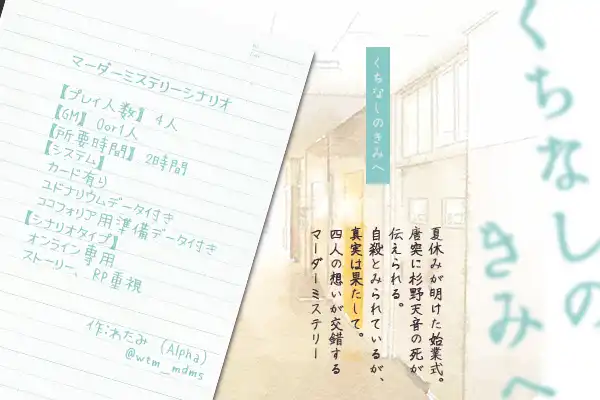 マーダーミステリーシナリオ
【プレイ人数】4人
【GM】0or1人
【所要時間】2時間
【システム】
カード有り
ユドナリウムデータ付き
ココフォリア用準備データ付き
【シナリオタイプ】
オンライン専用
ストーリー、RP重視
作:わたみ（Alpha）
@wtm_mdms
くちなしのきみへ
夏休みが明けた始業式。
唐突に杉野天音の死が
伝えられる。
自殺とみられているが、
真実は果たして。
四人の想いが交錯する
マーダーミステリー
くちなしの
きみへ